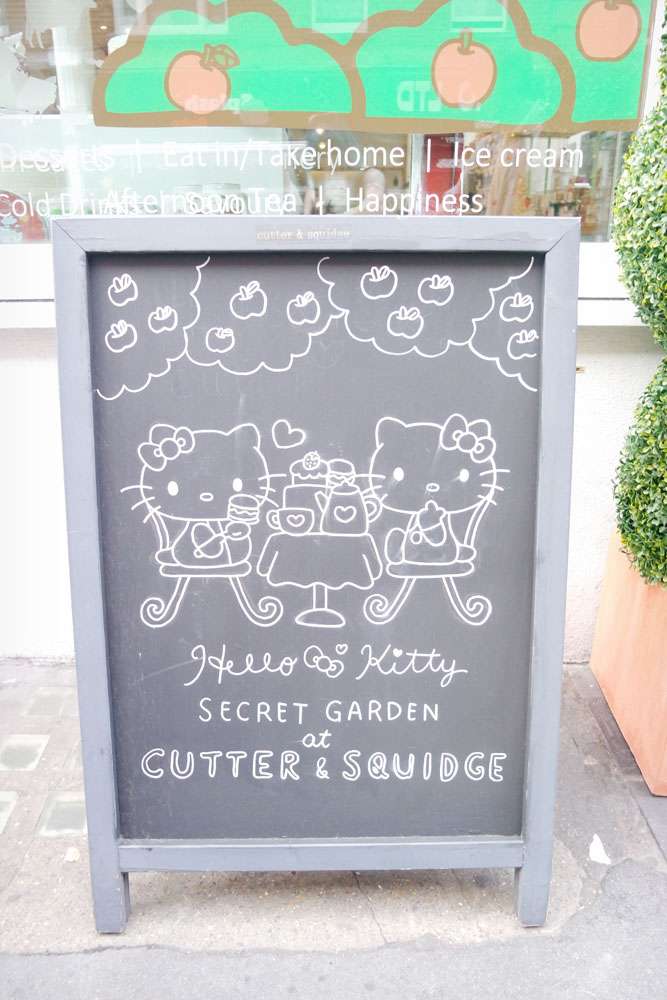 Desserts | Eat in/Take home | Ice cream
Cold Drinks
Afternoon Tea | Happiness
cutter & squidge
Hello Kitty
SECRET GARDEN
at
CUTTER & SQUIDGE